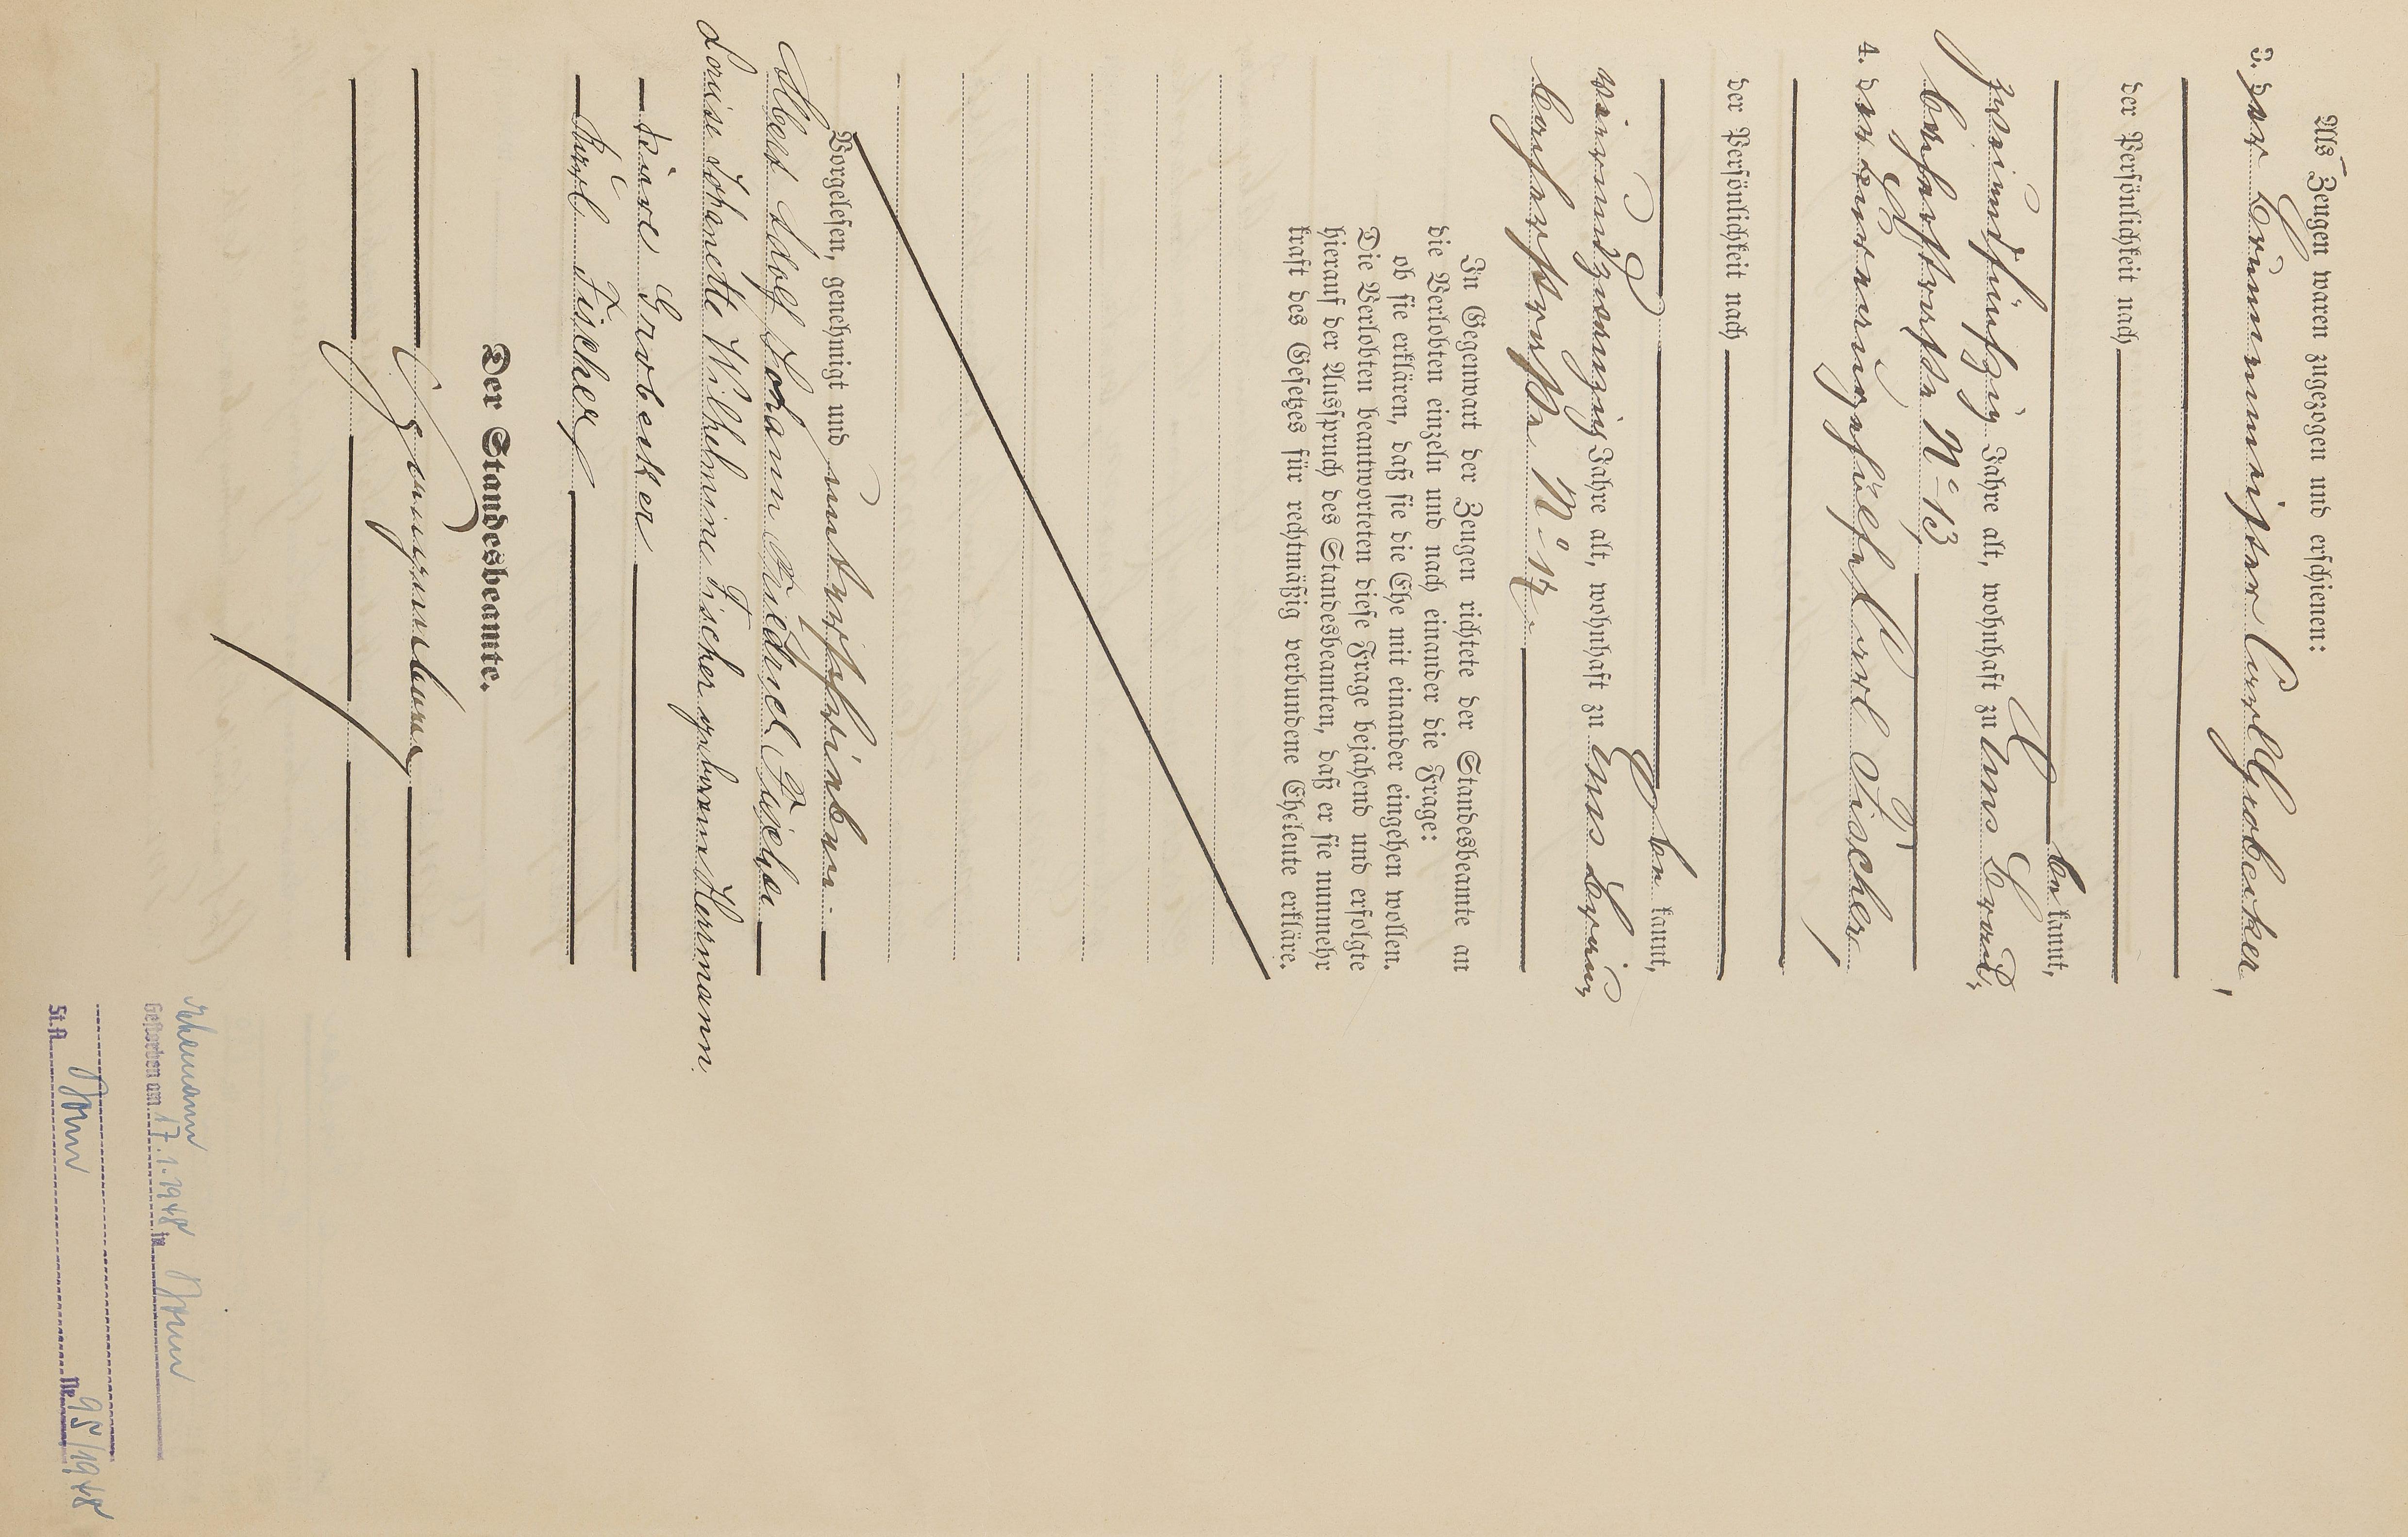 Als Zeugen waren zugezogen und erschienen:
3. der Brunnenmeister Carl Grobecker,
der Persönlichkeit nach
be kannt,
zweiundfünfzig Jahre alt, wohnhaft zu Ems, Grab,
Nº 13,
4. der Carl Fischer,
der Persönlichkeit nach
be kannt,
vierundzwanzig Jahre alt, wohnhaft zu Ems,
In Gegenwart der Zeugen richtete der Standesbeamte an
die Verlobten einzeln und nach einander die Frage:
ob sie erklären, daß sie die Ehe mit einander eingehen wollen.
Die Verlobten beantworteten diese Frage bejahend und erfolgte
hierauf der Ausspruch des Standesbeamten, daß er sie nunmehr
kraft des Gesetzes für rechtmäßig verbundene Eheleute erkläre.
Vorgelesen, genehmigt und unterschrieben.
Albert Adolf Johann Friedrich Fischer
Louise Johanette Wilhelmine Fischer geborene Herrmann.
Carl Grobecker
Karl Fischer
Der Standesbeamte.
Ehemann
Gestorben am 17.1.1948 in Bonn
St.A. Bonn Nr. 95/1948